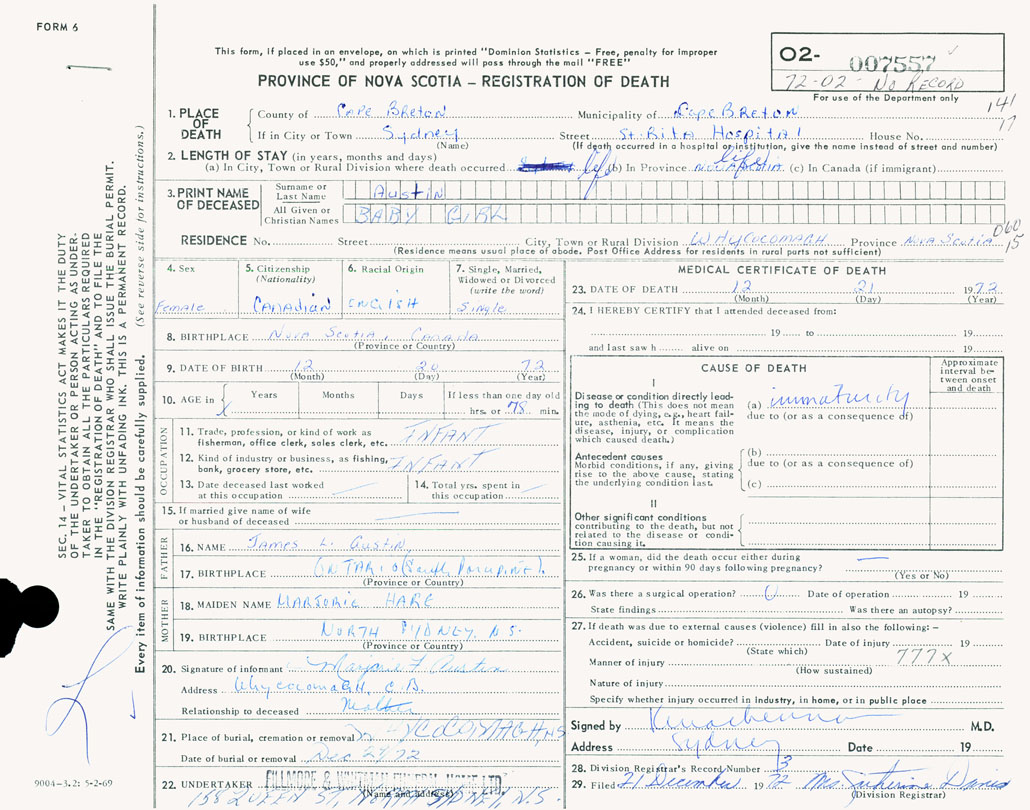 FORM 6
This form, if placed in an envelope, on which is printed "Dominion Statistics – Free, penalty for improper
use $50," and properly addressed will pass through the mail "FREE"
PROVINCE OF NOVA SCOTIA – REGISTRATION OF DEATH
02- 007557
72-02- No RECORD
For use of the Department only
141
17
1. PLACE OF DEATH
County of Cape Breton Municipality of Cape Breton
If in City or Town Sydney Street St. Rita Hospital House No.
(Name) (If death occurred in a hospital or institution, give the name instead of street and number)
2. LENGTH OF STAY (in years, months and days)
(a) In City, Town or Rural Division where death occurred life (b) In Province life NOVA SCOTIA (c) In Canada (if immigrant)
3. PRINT NAME OF DECEASED
Surname or Last Name Austin
All Given or Christian Names BABY GIRL
060
15
RESIDENCE No. Street City, Town or Rural Division WHYCOCOMAGH Province NOVA SCOTIA
(Residence means usual place of abode. Post Office Address for residents in rural parts not sufficient)
4. Sex
Female
5. Citizenship
(Nationality)
CANADIAN
6. Racial Origin
ENGLISH
7. Single, Married,
Widowed or Divorced
(write the word)
Single
8. BIRTHPLACE Nova Scotia, Canada
(Province or Country)
9. DATE OF BIRTH 12 20 72
(Month) (Day) (Year)
10. AGE in Years Months Days If less than one day old
hrs. or 78 min.
OCCUPATION
11. Trade, profession, or kind of work as
fisherman, office clerk, sales clerk, etc. INFANT
12. Kind of industry or business, as fishing,
bank, grocery store, etc. INFANT
13. Date deceased last worked
at this occupation
14. Total yrs. spent in
this occupation
15. If married give name of wife
or husband of deceased
FATHER
16. NAME James L. Austin
17. BIRTHPLACE ONTARIO (South Porcupine).
(Province or Country)
MOTHER
18. MAIDEN NAME MARJORIE HARE
19. BIRTHPLACE NORTH SYDNEY, N.S.
(Province or Country)
20. Signature of informant Marjorie F Austin
Address Whycocomagh, C.B.
Relationship to deceased Mother
21. Place of burial, cremation or removal WYCOCOMAGH, NS
Date of burial or removal Dec 27/72
22. UNDERTAKER FILLMORE & FUNERAL HOME LTD.
(Name and address)
158 QUEEN ST, NORTH SYDNEY, N.S.
MEDICAL CERTIFICATE OF DEATH
23. DATE OF DEATH 12 21 1972
(Month) (Day) (Year)
24. I HEREBY CERTIFY that I attended deceased from:
19 to 19
and last saw h alive on 19
CAUSE OF DEATH
Approximate
interval be-
tween onset
and death
I
Disease or condition directly lead-
ing to death (This does not mean
the mode of dying, e.g., heart fail-
ure, asthenia, etc. It means the
disease, injury, or complication
which caused death.)
(a) immaturity
due to (or as a consequence of)
Antecedent causes
Morbid conditions, if any, giving
rise to the above cause, stating
the underlying condition last.
(b)
due to (or as a consequence of)
(c)
II
Other significant conditions
contributing to the death, but not
related to the disease or condi-
tion causing it.
25. If a woman, did the death occur either during
pregnancy or within 90 days following pregnancy?
(Yes or No)
26. Was there a surgical operation? 0 Date of operation 19
State findings Was there an autopsy?
27. If death was due to external causes (violence) fill in also the following: –
Accident, suicide or homicide? Date of injury 19
(State which)
777x
Manner of injury
(How sustained)
Nature of injury
Specify whether injury occurred in industry, in home, or in public place
Signed by M.D.
Address Sydney Date 19
28. Division Registrar's Record Number 3
29. Filed 21 December 1972 Mrs. Katherine Davis
(Division Registrar)
SEC. 14 – VITAL STATISTICS ACT MAKES IT THE DUTY
OF THE UNDERTAKER OR PERSON ACTING AS UNDER-
TAKER TO OBTAIN ALL THE PARTICULARS REQUIRED
IN THE "REGISTRATION OF DEATH" AND TO FILE THE
SAME WITH THE DIVISION REGISTRAR WHO SHALL ISSUE THE BURIAL PERMIT.
WRITE PLAINLY WITH UNFADING INK. THIS IS A PERMANENT RECORD.
Every item of information should be carefully supplied. (See reverse side for instructions.)
9004-3.2: 5-2-69